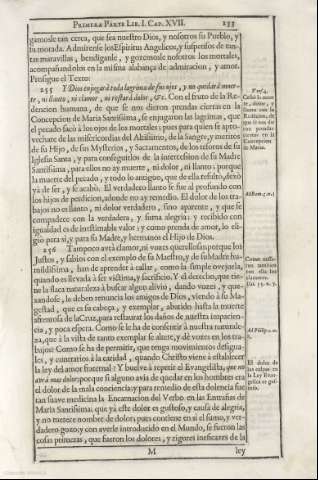 PRIMERA PARTE LIB. I. CAP. XVII. 133
gamosle tan cerca, que sea nuestro Dios, y nosotros su Pueblo, y
su morada. Admirense los Espiritus Angelicos, y suspensos de tan-
tas maravillas, bendiganle, y gozemosle nosotros los mortales,
acompañandolos en la misma alabança de admiracion, y amor.
Prosigue el Texto:
255 Y Dios enjugarà toda lagrima de sus ojos, y no quedarà muer-
te, ni llanto, ni clamor, ni restarà dolor, &c. Con el fruto de la Re-
dencion humana, de que se nos dieron prendas ciertas en la
Concepcion de Maria Santissima, se enjugaràn las lagrimas, que
el pecado sacò à los ojos de los mortales; pues para quien se apro-
vechare de las misericordias del Altissimo, de la sangre, y meritos
de su Hijo, de sus Mysterios, y Sacramentos, de los tesoros de su
Iglesia Santa, y para conseguirlos de la intercession de su Madre
Santissima, para ellos no ay muerte, ni dolor, ni llanto; porque
la muerte del pecado, y todo lo antiguo, que de ella resultò, dexò
yà de ser, y se acabò. El verdadero llanto se fue al profundo con
los hijos de perdicion, adonde no ay remedio. El dolor de los tra-
bajos no es llanto, ni dolor verdadero, sino aparente, y que se
compadece con la verdadera, y suma alegria: y recibido con
igualdad es de inestimable valor; y como prenda de amor, lo eli-
giò para sì, y para su Madre, y hermanos el Hijo de Dios.
256 Tampoco avrà clamor, ni vozes querellosas; porque los
Justos, y sabios con el exemplo de su Maestro, y de su Madre hu-
mildissima, han de aprender à callar, como la simple ovejuela,
quando es llevada à ser victima, y sacrificio. Y el derecho, que tie-
ne la flaca naturaleza à buscar algun alivio, dando vozes, y que-
xandose, le deben renunciar los amigos de Dios, viendo à su Ma-
gestad, que es su cabeça, y exemplar, abatido hasta la muerte
afrentosa de la Cruz, para restaurar los daños de nuestra impacien-
cia, y poca espera. Como se le ha de consentir à nuestra naturale-
za, que à la vista de tanto exemplar se altere, y dè vozes en los tra-
bajos? Como se ha de permitir, que tenga movimientos desigua-
les, y contrarios à la caridad, quando Christo viene à establecer
la ley del amor fraternal? Y buelve à repetir el Evangelista, que no
avrà mas dolor; porque si alguno avia de quedar en los hombres era
el dolor de la mala conciencia; y para remedio de esta dolencia fue
tan suave medicina la Encarnacion del Verbo en las Entrañas de
Maria Santissima, que yà este dolor es gustoso, y causa de alegria,
y no merece nombre de dolor, pues contiene en sì el sumo, y ver-
dadero gozo; y con averle introducido en el Mundo, se fueron las
cosas primeras, que fueron los dolores, y rigores ineficaces de la
M ley